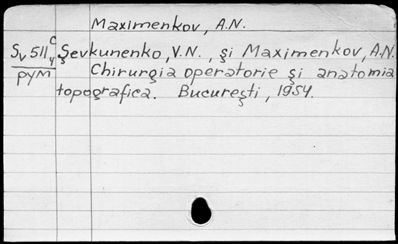 Maximenkov, A.N.
Sv 511 c/4 Şevkunenko, V.N., şi Maximenkov, A.N.
pym Chirurgia operatorie şi anatomia
topografica. Bucureşti, 1954.